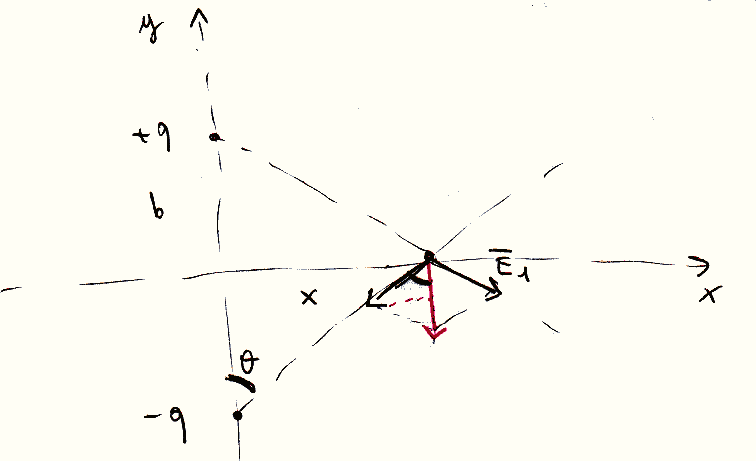 y
+q
b
E̅₁
x
x
θ
-q